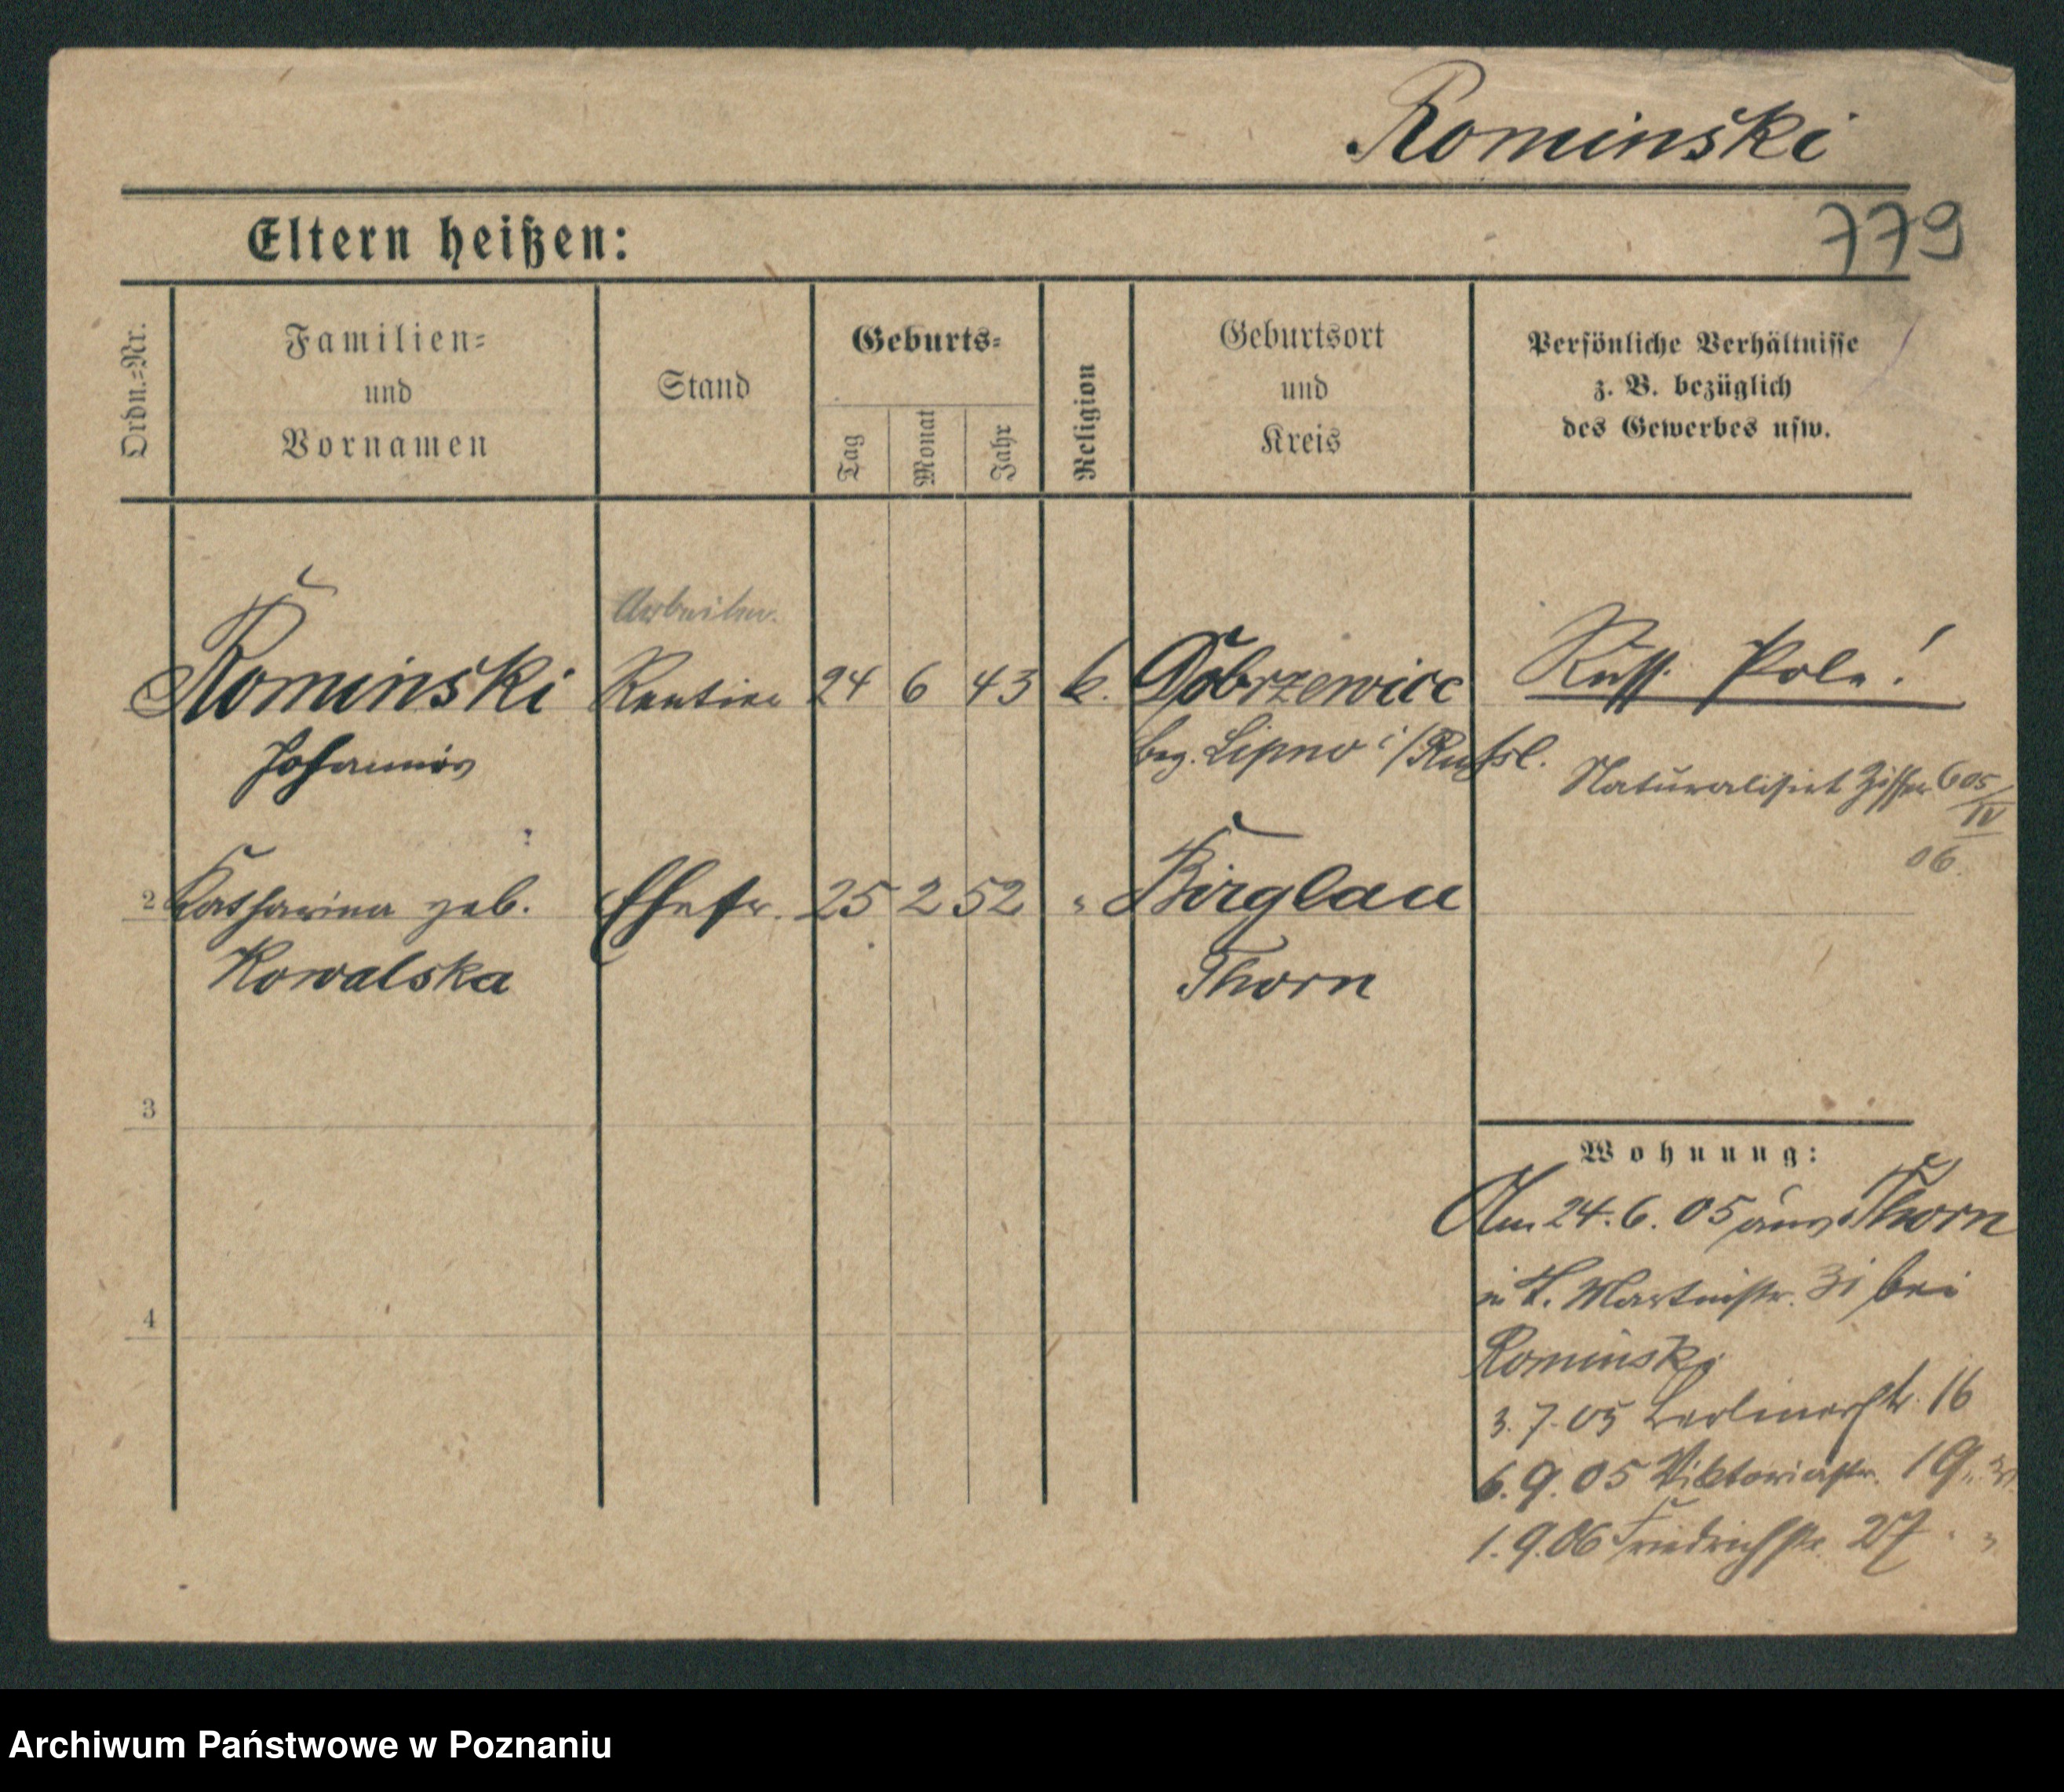 Rominski
Eltern heißen:
779
Ordn.=Nr.
Familien=
und
Vornamen
Stand
Geburts=
Tag
Monat
Jahr
Religion
Geburtsort
und
Kreis
Persönliche Verhältnisse
z. B. bezüglich
des Gewerbes usw.
Arbeiter.
Rominski Rentier 24 6 43 k. Dobrzewice Russ. Pole!
Johannes
bez. Lipno i/Russl.
Naturalisiert Ziffer 605/IV
06.
2 Katharina geb. Ehefr. 25 2 52 " Birglau
Kowalska Thorn
3
4
Wohnung:
Am 24.6.05 aus Thorn
in St. Martinstr. 31 bei
Rominski
3.7.05 Berlinerstr. 16
6.9.05 Viktoriastr. 19
1.9.06 Friedrichstr. 27
Archiwum Państwowe w Poznaniu